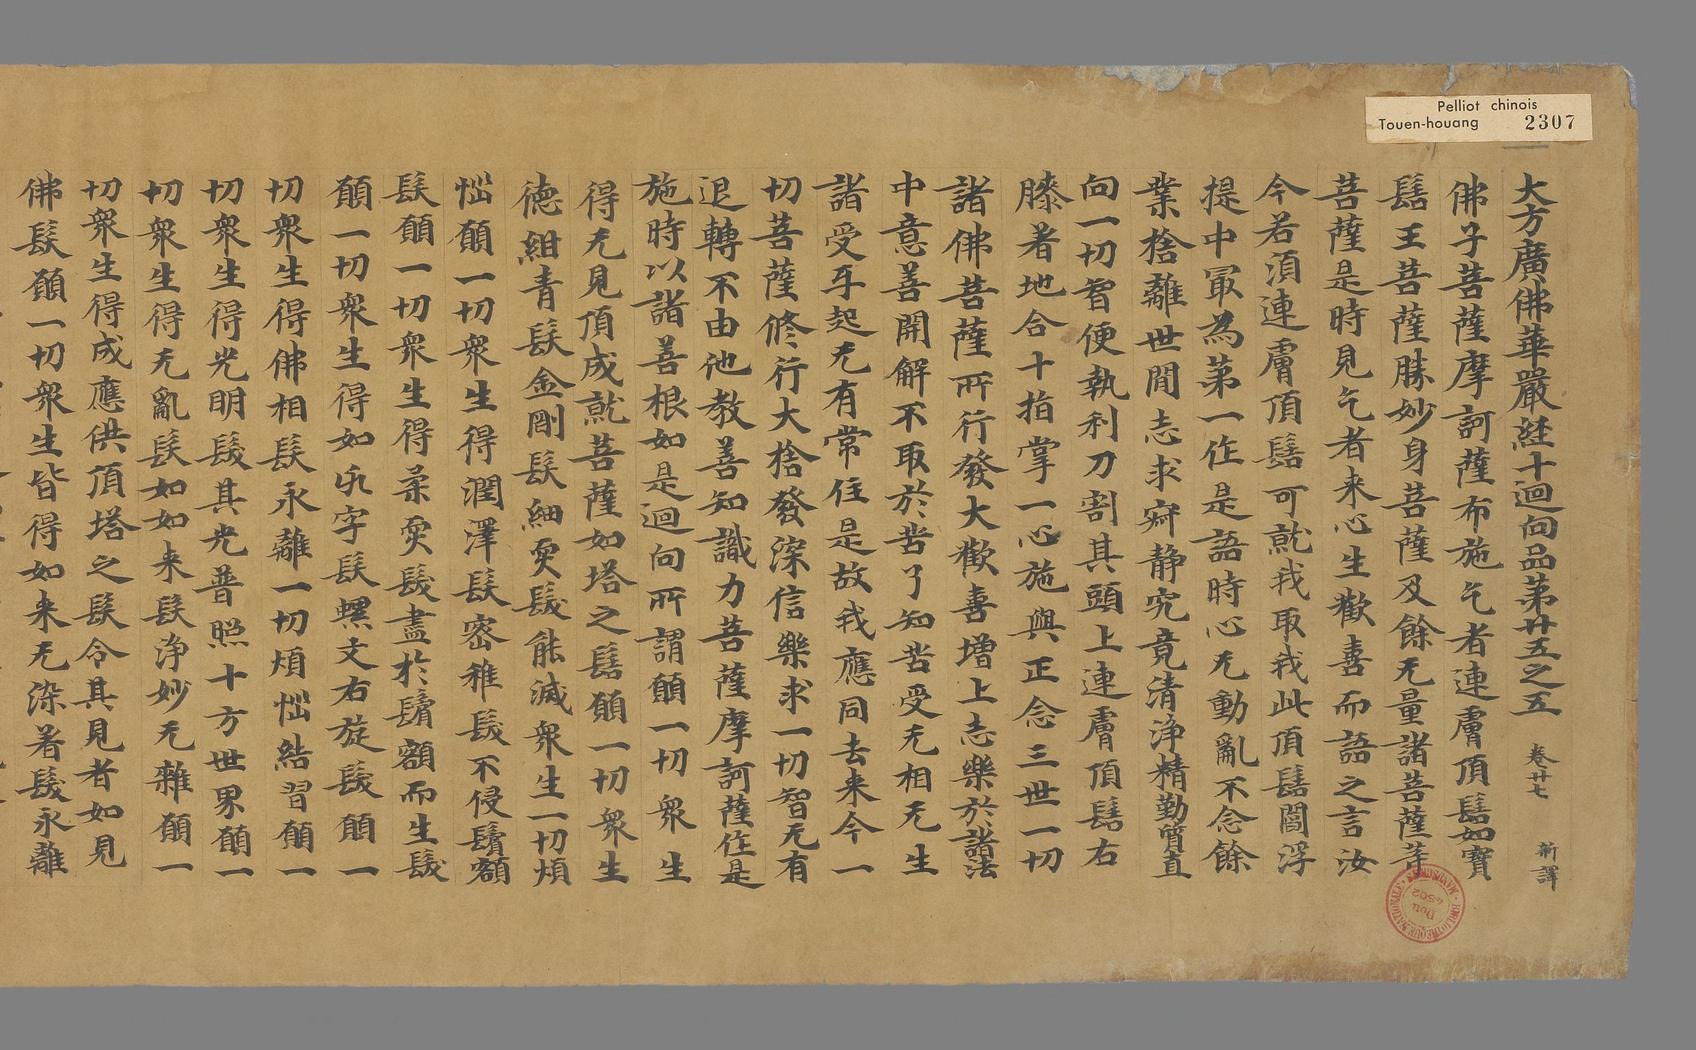 Pelliot chinois
Touen-houang 2307
大方廣佛華嚴經十迴向品第廿五之五 卷廿七 新譯
佛子菩薩摩訶薩布施乞者連膚頂髻如寶
髻王菩薩勝妙身菩薩及餘无量諸菩薩等
菩薩是時見乞者来心生歡喜而語之言汝
今若須連膚頂髻可就我取我此頂髻閻浮
提中冣為第一作是語時心无動亂不念餘
業捨離世間志求寂静究竟清淨精勤質直
向一切智便執利刀割其頭上連膚頂髻右
膝著地合十指掌一心施與正念三世一切
諸佛菩薩所行發大歡喜增上志樂於諸法
中意善開解不取於苦了知苦受无相无生
諸受互起无有常住是故我應同去来今一
切菩薩修行大捨發深信樂求一切智无有
退轉不由他教善知識力菩薩摩訶薩作是
施時以諸善根如是迴向所謂願一切衆生
得无見頂成就菩薩如塔之髻願一切衆生
得紺青髮金剛髮細耎髮能滅衆生一切煩
惱願一切衆生得潤澤髮密稚髮不侵鬢額
髮願一切衆生得柔耎髮盡於鬢額而生髮
願一切衆生得如卍字髮螺文右旋髮願一
切衆生得佛相髮永離一切煩惱結習願一
切衆生得光明髮其光普照十方世界願一
切衆生得无亂髮如如来髮淨妙无雜願一
切衆生得成應供頂塔之髮令其見者如見
佛髮願一切衆生皆得如来无染著髮永離
BIBLIOTHEQUE NATIONALE MANUSCRITS
Don
4502